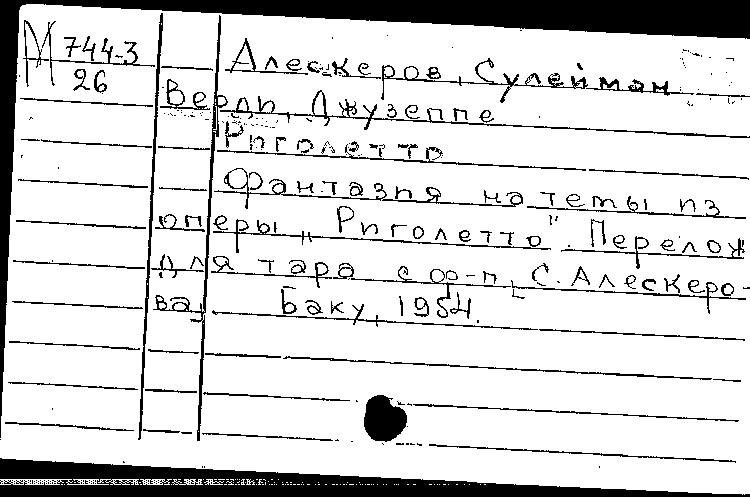 М 744-3
26
Алескеров, Сулейман
Верди, Джузеппе
Риголетто
Фантазия на темы из
оперы „Риголетто". Перелож
для тара с ф-п. [С. Алескеро-
ва]. Баку, 1954.